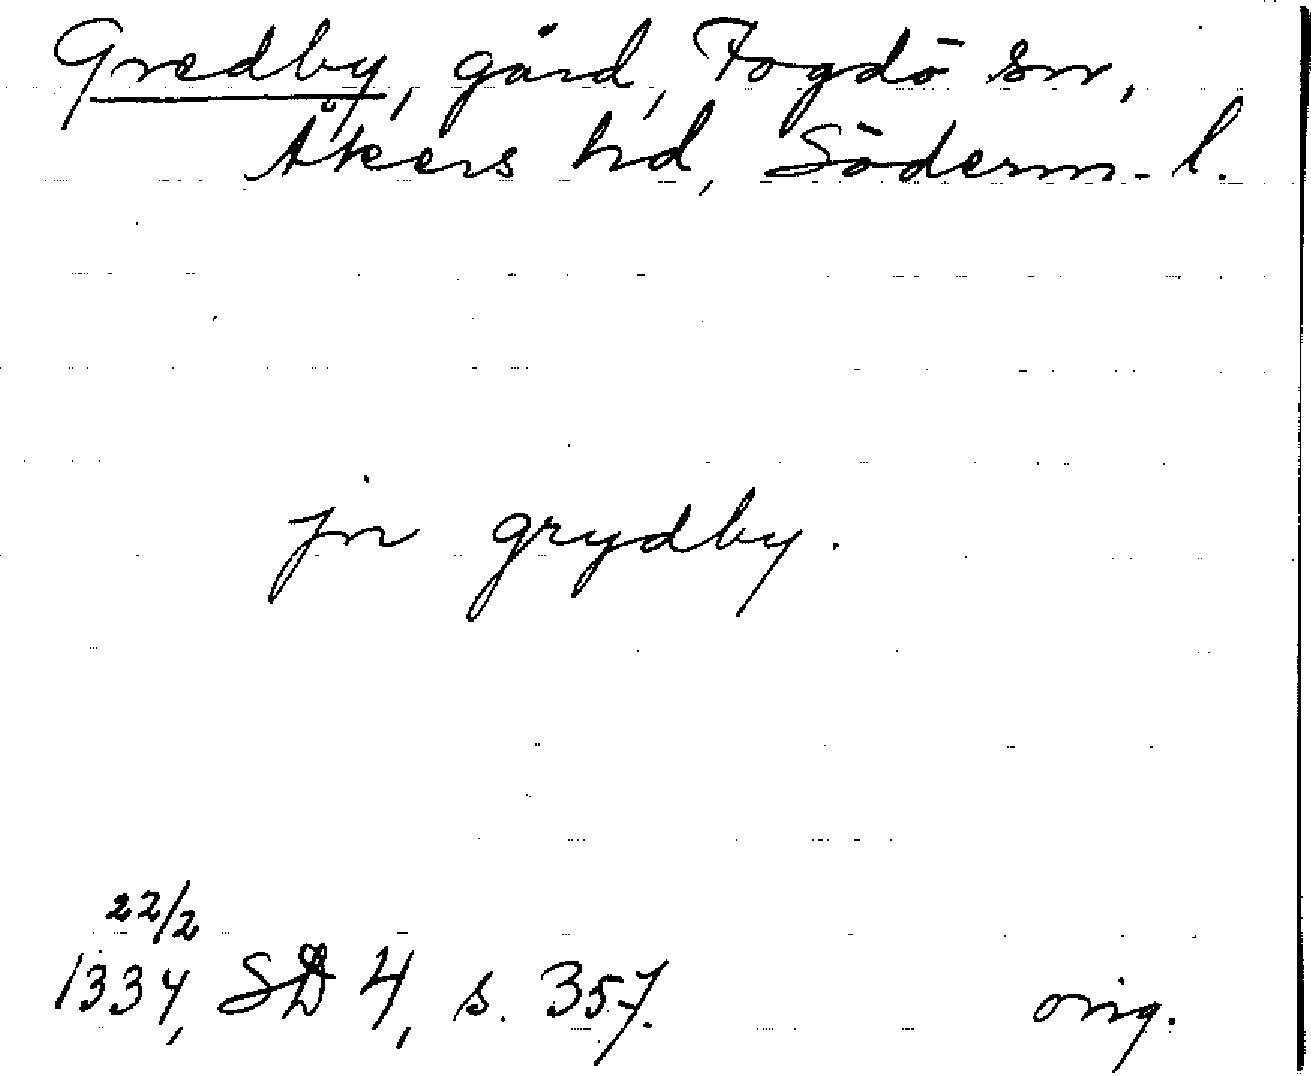 Gredby, gård, Fogdö sn,
Åkers hd, Söderm. l.
jn grydby.
22/2
1334, SD 4, s. 357.
orig.